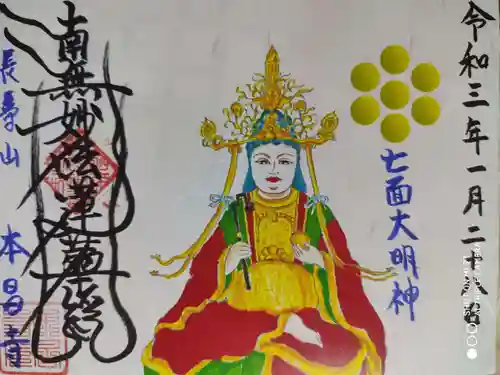 令和三年一月二十
七面大明神
南無妙法蓮華経
長壽山 本昌寺